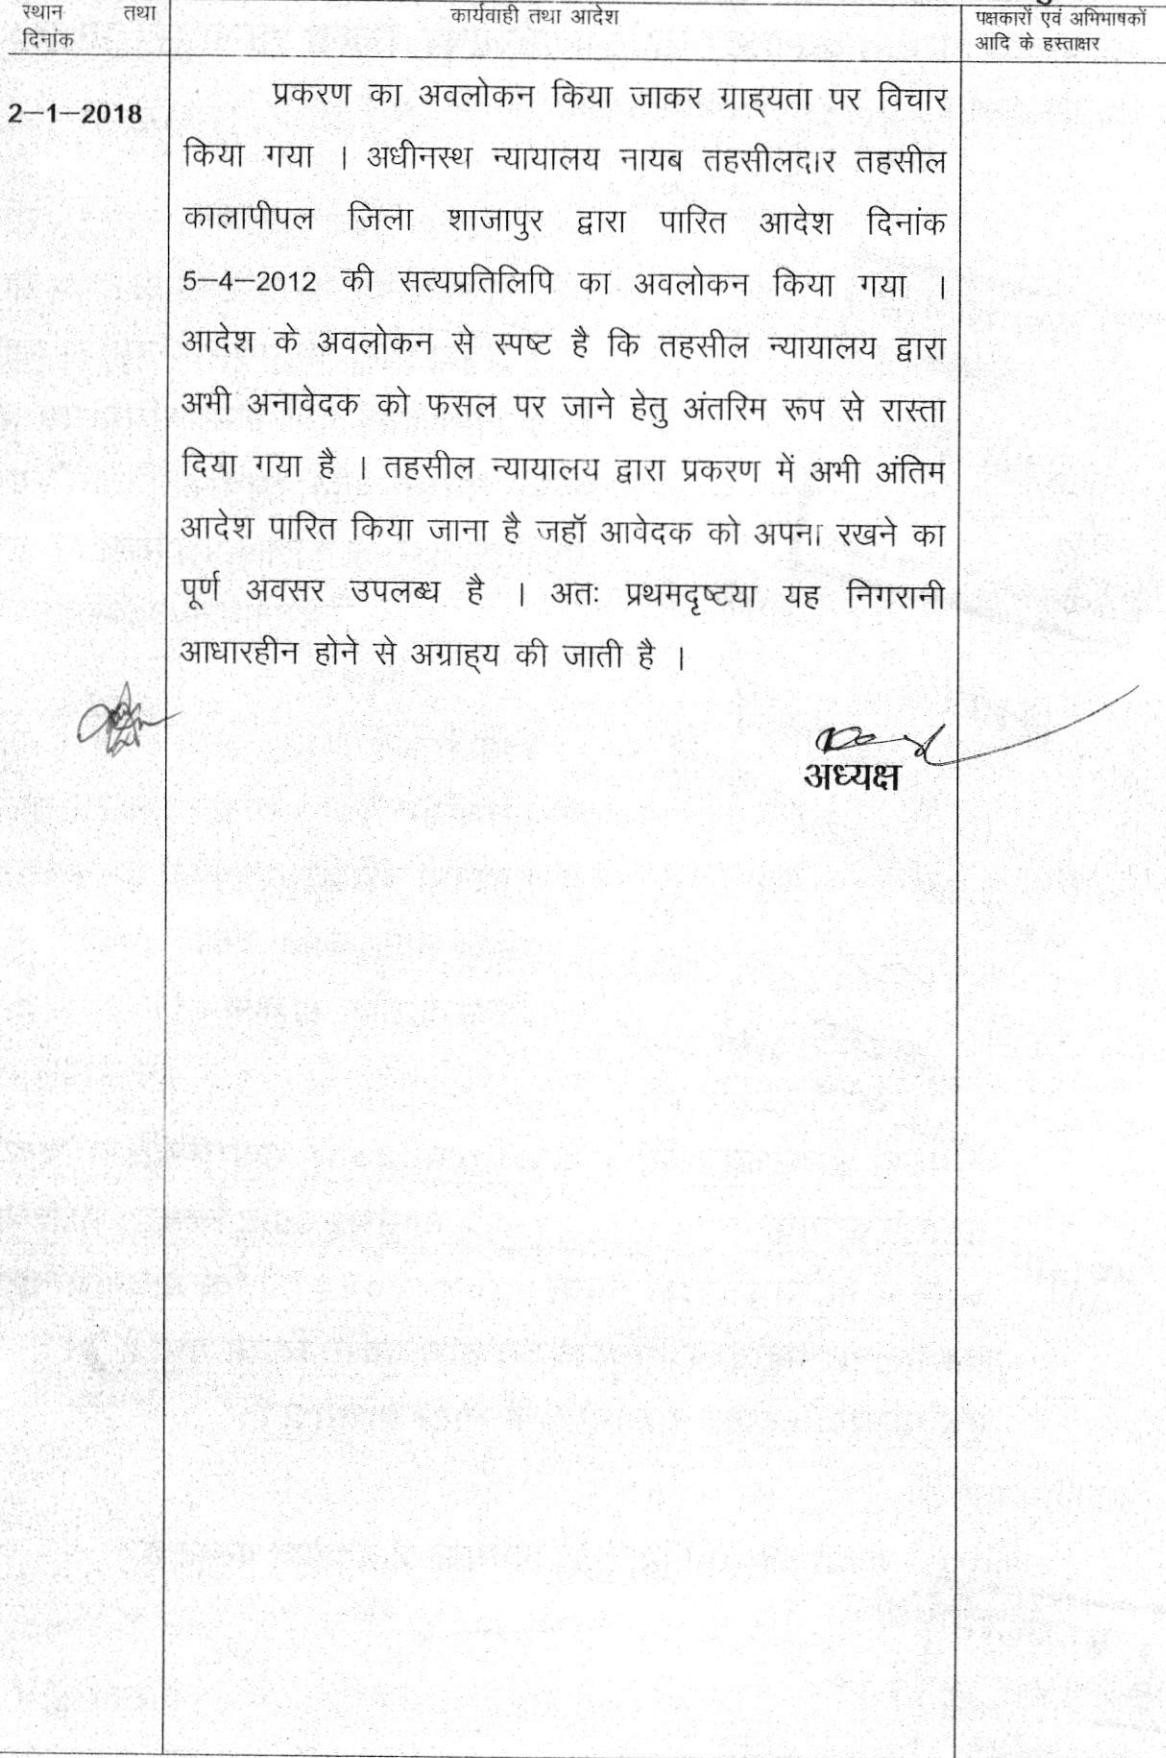 स्थान तथा
दिनांक
कार्यवाही तथा आदेश
पक्षकारों एवं अभिभाषकों
आदि के हस्ताक्षर
2–1–2018
प्रकरण का अवलोकन किया जाकर ग्राह्यता पर विचार
किया गया । अधीनस्थ न्यायालय नायब तहसीलदार तहसील
कालापीपल जिला शाजापुर द्वारा पारित आदेश दिनांक
5–4–2012 की सत्यप्रतिलिपि का अवलोकन किया गया ।
आदेश के अवलोकन से स्पष्ट है कि तहसील न्यायालय द्वारा
अभी अनावेदक को फसल पर जाने हेतु अंतरिम रूप से रास्ता
दिया गया है । तहसील न्यायालय द्वारा प्रकरण में अभी अंतिम
आदेश पारित किया जाना है जहॉ आवेदक को अपना रखने का
पूर्ण अवसर उपलब्ध है । अतः प्रथमदृष्टया यह निगरानी
आधारहीन होने से अग्राह्य की जाती है ।
अध्यक्ष